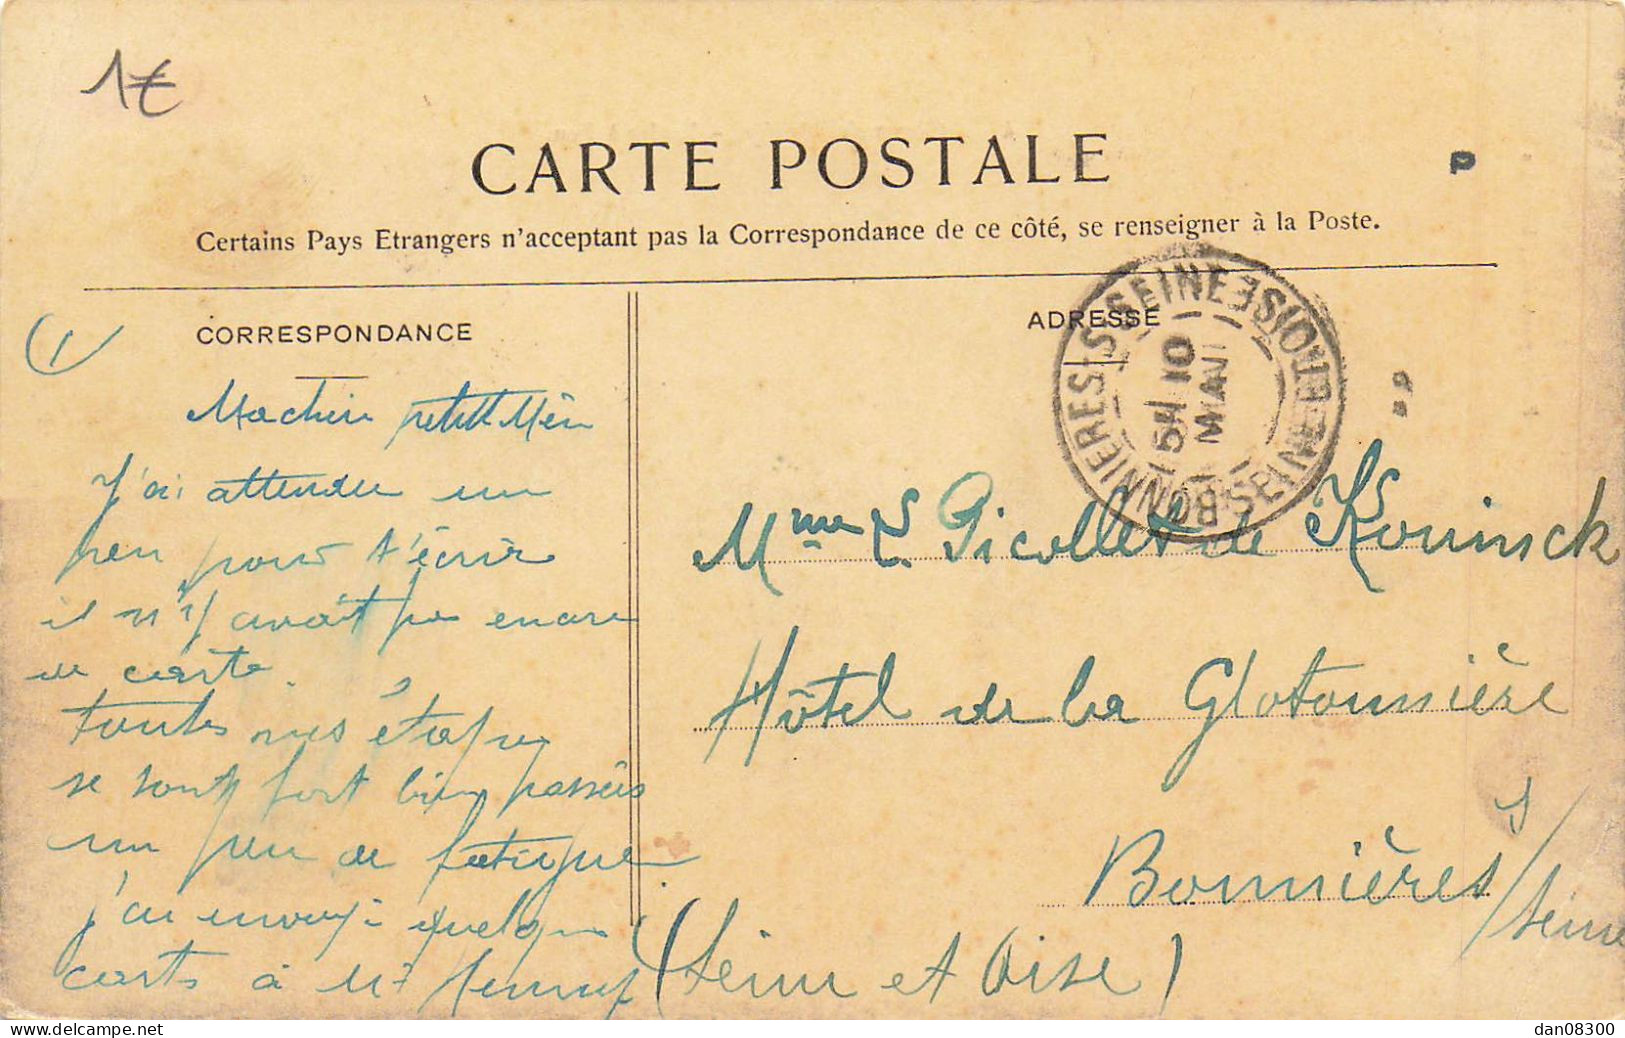 1€
CARTE POSTALE
P
Certains Pays Etrangers n'acceptant pas la Correspondance de ce côté, se renseigner à la Poste.
1
CORRESPONDANCE
petite Mèn
J'ai attendu un
peu pour t'écrire
il n'y avait pas encore
de carte.
toutes nos étapes
se sont fort bien passées
un peu de fatigue
j'ai envoyé quelques
cartes à Mr
ADRESSE
BONNIERES-S-SEINE SEINE-ET-OISE
10
Mme L. Picollet de Koninck
Hôtel de la Glotonnière
Bonnières s/Seine
(Seine et Oise)
dan08300